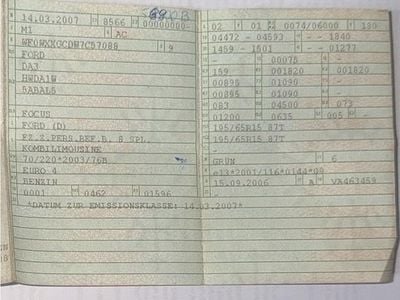 14.03.2007 8566 00000000-
M1 AC
9
FORD
DA3
HWDA1W
FOCUS
FORD (D)
FZ.Z.PERS.BEF.B. 8 SPL.
KOMBILIMOUSINE
70/220*2003/76B
EURO 4
BENZIN
0001 0462 01596
*DATUM ZUR EMISSIONSKLASSE: 14.03.2007*
02 01 0074/06000 180
04472 - 04593 - - 1840
1459 - 1501 - - 01277
- 00075 -
159 001820 001820
00895 01090 -
00895 01090 -
083 04500 073
01200 0635 005 -
195/65R15 87T
195/65R15 87T
-
GRÜN 6
15.09.2006 A VA463459